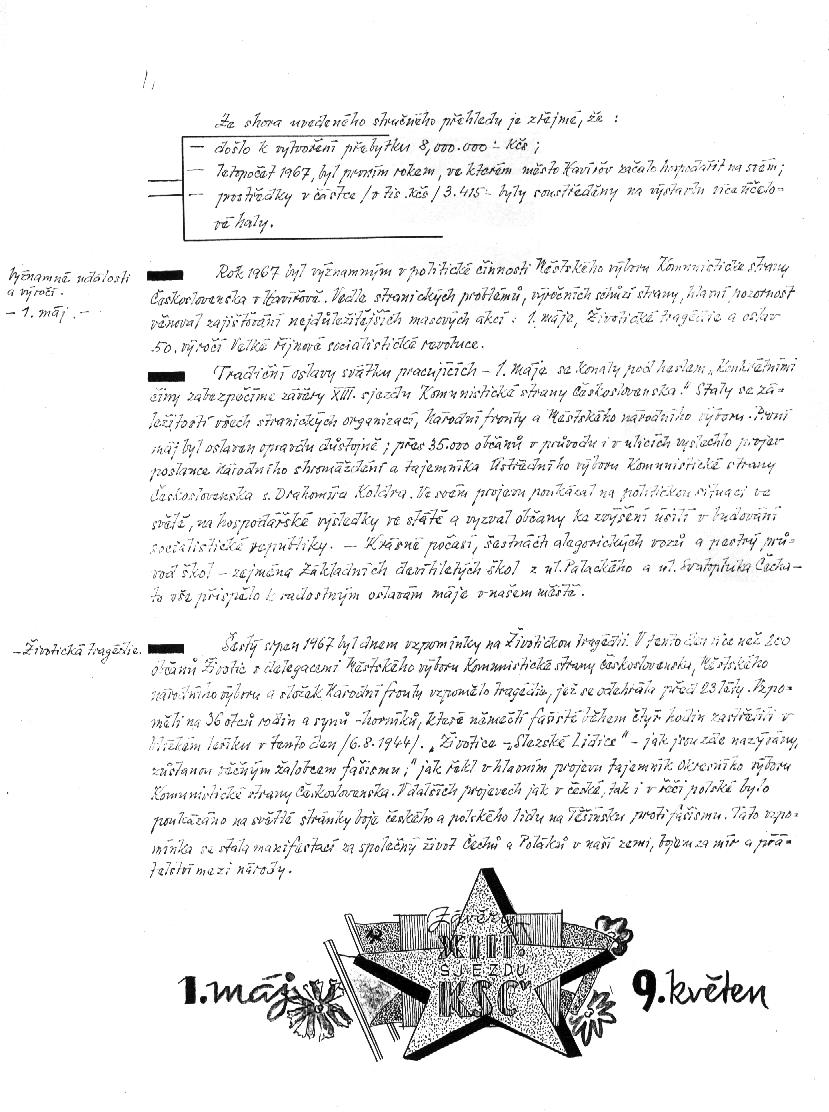 1,
Ze shora uvedeného stručného přehledu je zřejmé, že :
— došlo k vytvoření přebytku 8,000.000.- Kčs ;
— letopočet 1967, byl prvním rokem, ve kterém město Havířov začalo hospodařit na svém ;
— prostředky v částce /v tis. Kčs/ 3.415.- byly soustředěny na výstavbu víceúčelo-
vé haly.
Významné události
a výročí.
- 1. máj. -
Rok 1967 byl významným v politické činnosti Městského výboru Komunistické strany
Československa v Havířově. Vedle stranických problémů, výročních schůzí strany, hlavní pozornost
věnoval zajišťování nejdůležitějších masových akcí : 1. máje, Životické tragédie a oslav
50. výročí Velké říjnové socialistické revoluce.
Tradiční oslavy svátku pracujících - 1. máje se konaly pod heslem „Konkrétními
činy zabezpečíme závěry XIII. sjezdu Komunistické strany Československa." Staly se zá-
ležitostí všech stranických organizací, Národní fronty a Městského národního výboru. První
máj byl oslaven opravdu důstojně ; přes 35.000 občanů v průvodu i v ulicích vyslechlo projev
poslance Národního shromáždění a tajemníka Ústředního výboru Komunistické strany
Československa s. Drahomíra Koldra. Ve svém projevu poukázal na politickou situaci ve
světě, na hospodářské výsledky ve státě a vyzval občany ke zvýšení úsilí v budování
socialistické republiky. — Krásné počasí, šestnáct alegorických vozů a pestrý prů-
vod škol - zejména Základních devítiletých škol z ul. Palackého a ul. Svatopluka Čecha -
to vše přispělo k radostným oslavám máje v našem městě.
- Životická tragédie.
Šestý srpen 1967 byl dnem vzpomínky na Životickou tragédii. V tento den více než 200
občanů Životic s delegacemi Městského výboru Komunistické strany Československa, Městského
národního výboru a složek Národní fronty vzpomělo tragédie, jež se odehrála před 23 léty. Vzpo-
měli na 36 otců rodin a synů - horníků, které němečtí fašisté během čtyř hodin zastřelili v
blízkém lesíku v tento den /6.8.1944/. „Životice - „Slezské Lidice" - jak jsou zde nazývány,
zůstanou věčným žalobcem fašismu ;" jak řekl v hlavním projevu tajemník Okresního výboru
Komunistické strany Československa. V dalších projevech jak v české, tak i v řeči polské bylo
poukázáno na světlé stránky boje českého a polského lidu na Těšínsku proti fašismu. Tato vzpo-
mínka se stala manifestací za společný život Čechů a Poláků v naší zemi, bojem za mír a přá-
telství mezi národy.
Závěry
XIII.
SJEZDU
KSČ"
1. máj 9. květen